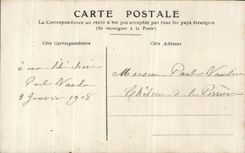 CARTE POSTALE
La Correspondance au recto n'est pas acceptée par tous les pays étrangers
(Se renseigner à la Poste)
Côté Correspondance
Côté Adresse
à
Paul
3 Janvier 1908
Monsieur Paul
Château de la